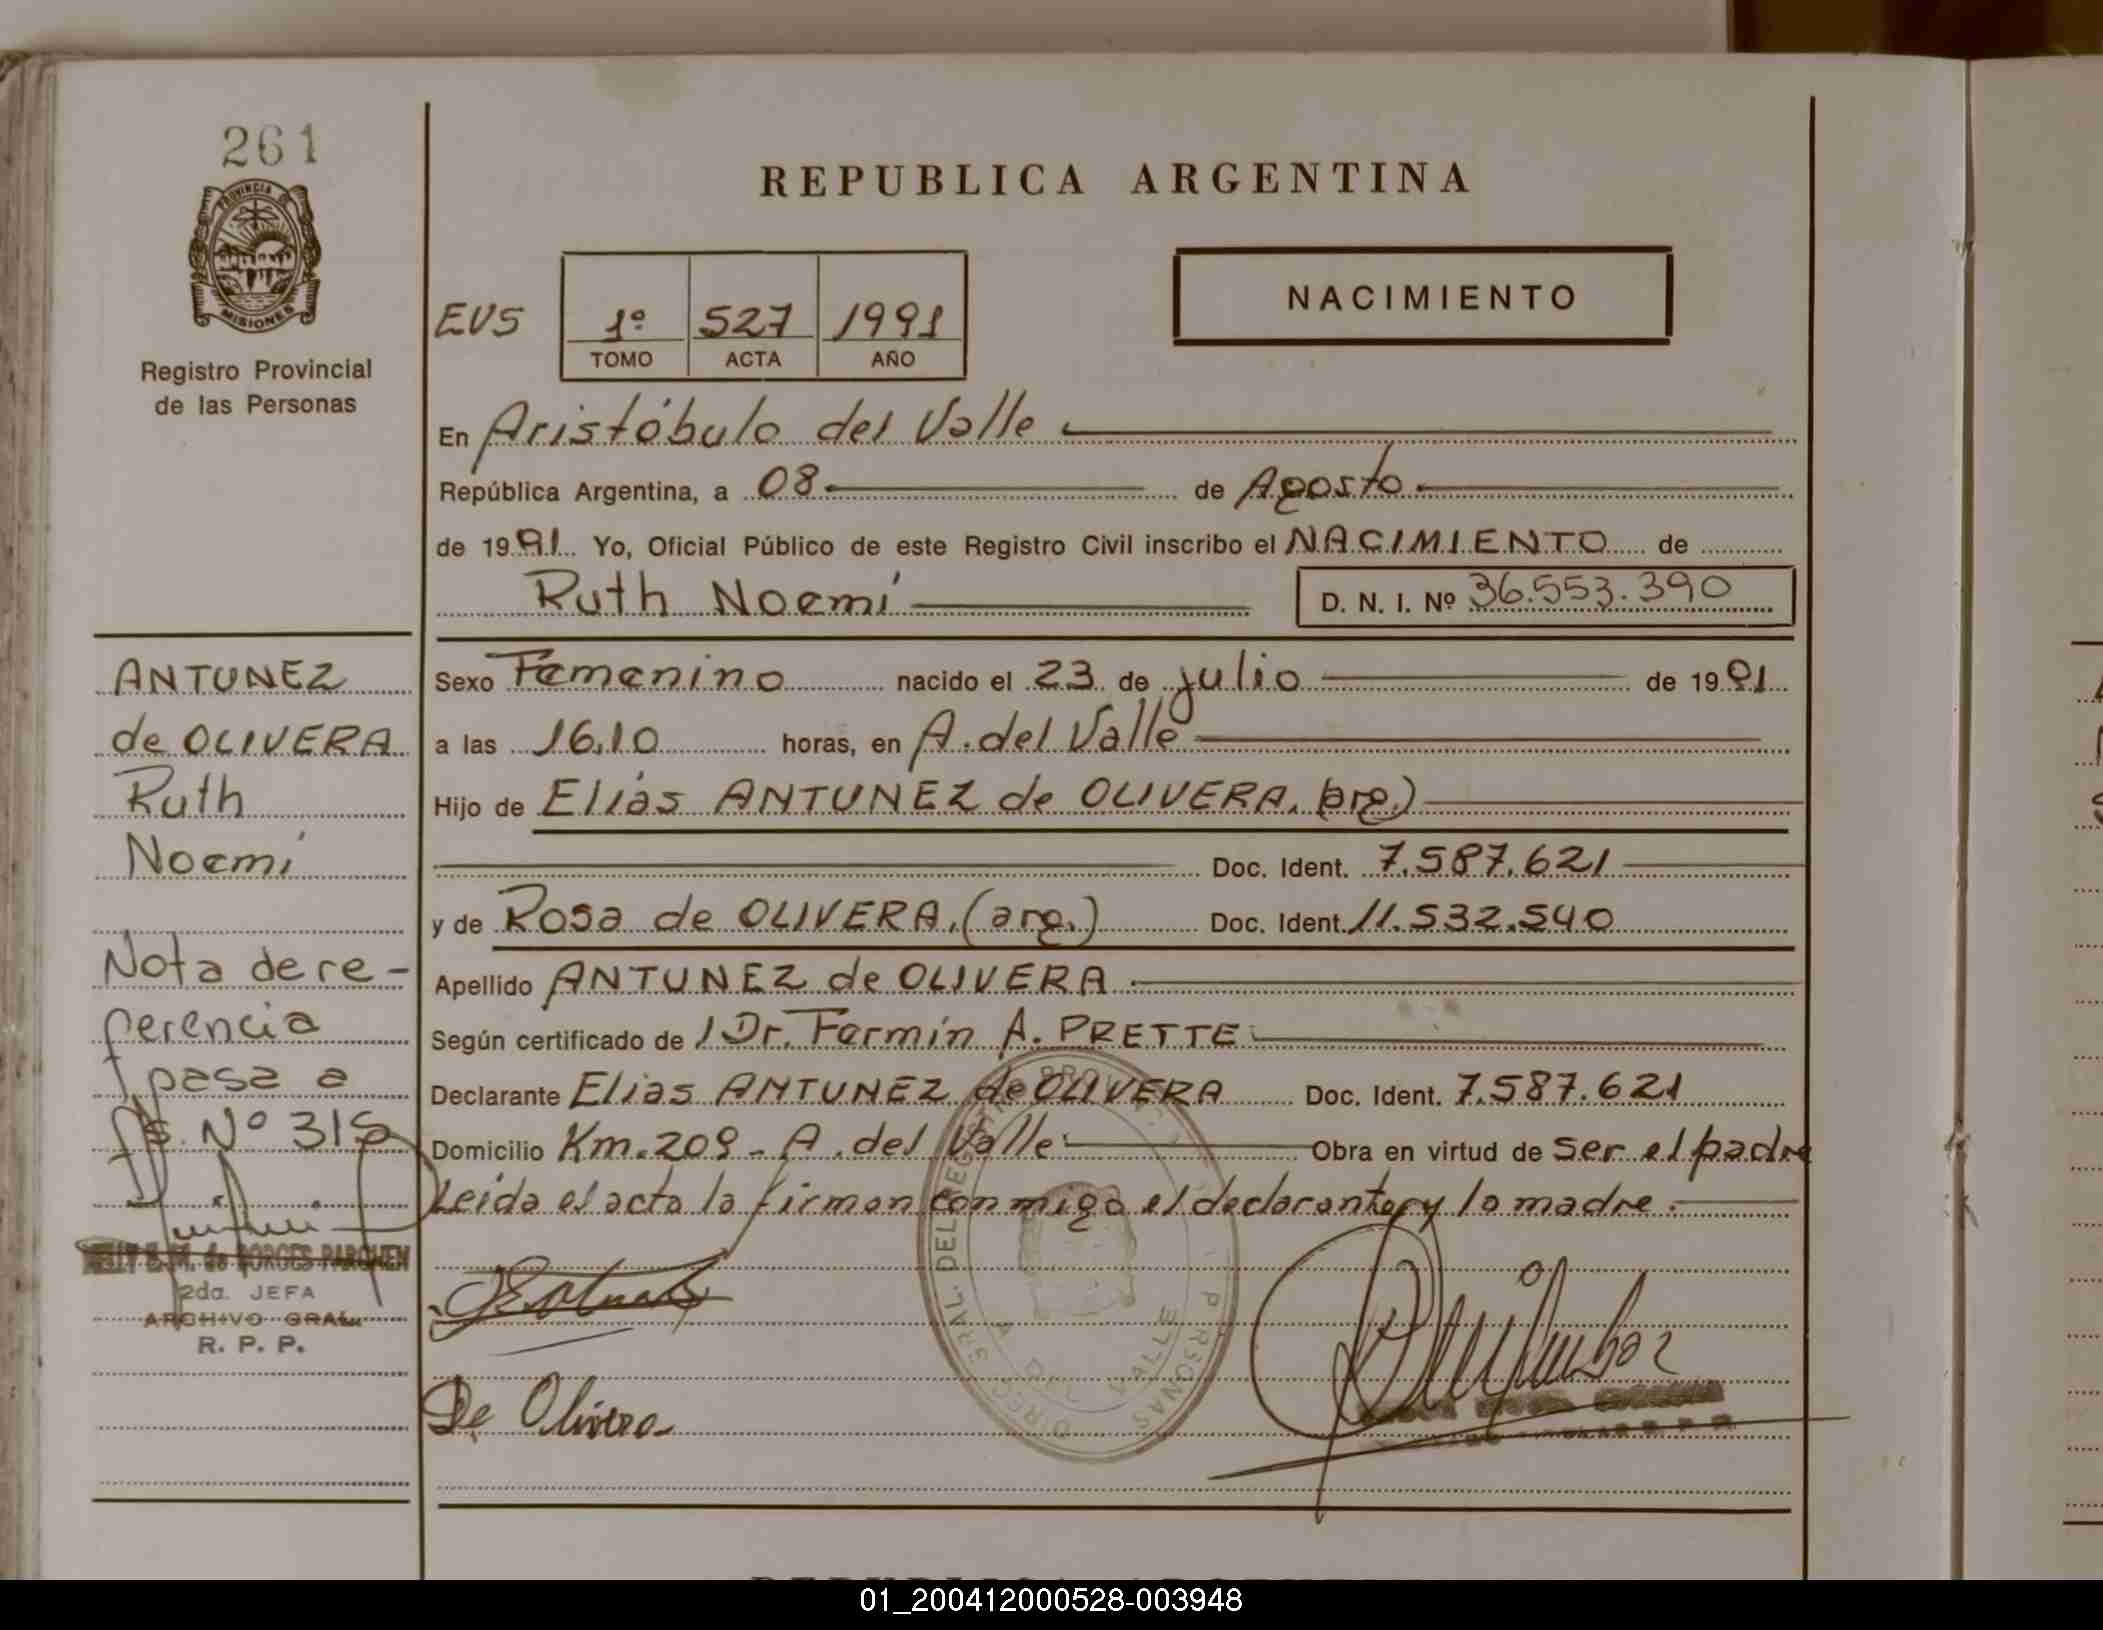 261
PROVINCIA DE
MISIONES
Registro Provincial
de las Personas
REPUBLICA ARGENTINA
NACIMIENTO
EVS
1º 527 1991
TOMO ACTA AÑO
En Aristóbulo del Valle
República Argentina, a 08 de Agosto
de 1991 Yo, Oficial Público de este Registro Civil inscribo el NACIMIENTO de
Ruth Noemí D. N. I. Nº 36.553.390
Sexo Femenino nacido el 23 de julio de 1991
a las 16,10 horas, en A. del Valle
Hijo de Elías ANTUNEZ de OLIVERA, (arg.)
Doc. Ident. 7.587.621
y de Rosa de OLIVERA, (arg.) Doc. Ident. 11.532.540
Apellido ANTUNEZ de OLIVERA
Según certificado de / Dr. Fermín A. PRETTE
Declarante Elias ANTUNEZ de OLIVERA Doc. Ident. 7.587.621
Domicilio Km. 209 - A. del Valle Obra en virtud de ser el padre
Leída el acta la firman conmigo el declarante y la madre.
De Olivera
A DEL VALLE
ANTUNEZ
de OLIVERA
Ruth
Noemí
Nota de re-
ferencia
pasa a
fs. Nº 315
de BORGES PARCHEM
2da. JEFA
ARCHIVO GRAL.
R. P. P.
01_200412000528-003948